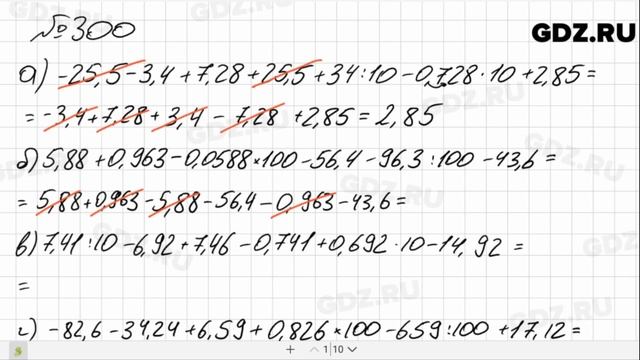 №300
GDZ.RU
а) -25,5-3,4+7,28+25,5+34:10-0,728·10+2,85=
=-3,4+7,28+3,4-7,28+2,85=2,85
б) 5,88+0,963-0,0588×100-56,4-96,3:100-43,6=
=5,88+0,963-5,88-56,4-0,963-43,6=
в) 7,41:10-6,92+7,46-0,741+0,692·10-14,92=
=
г) -82,6-34,24+6,59+0,826×100-659:100+17,12=
1 | 10